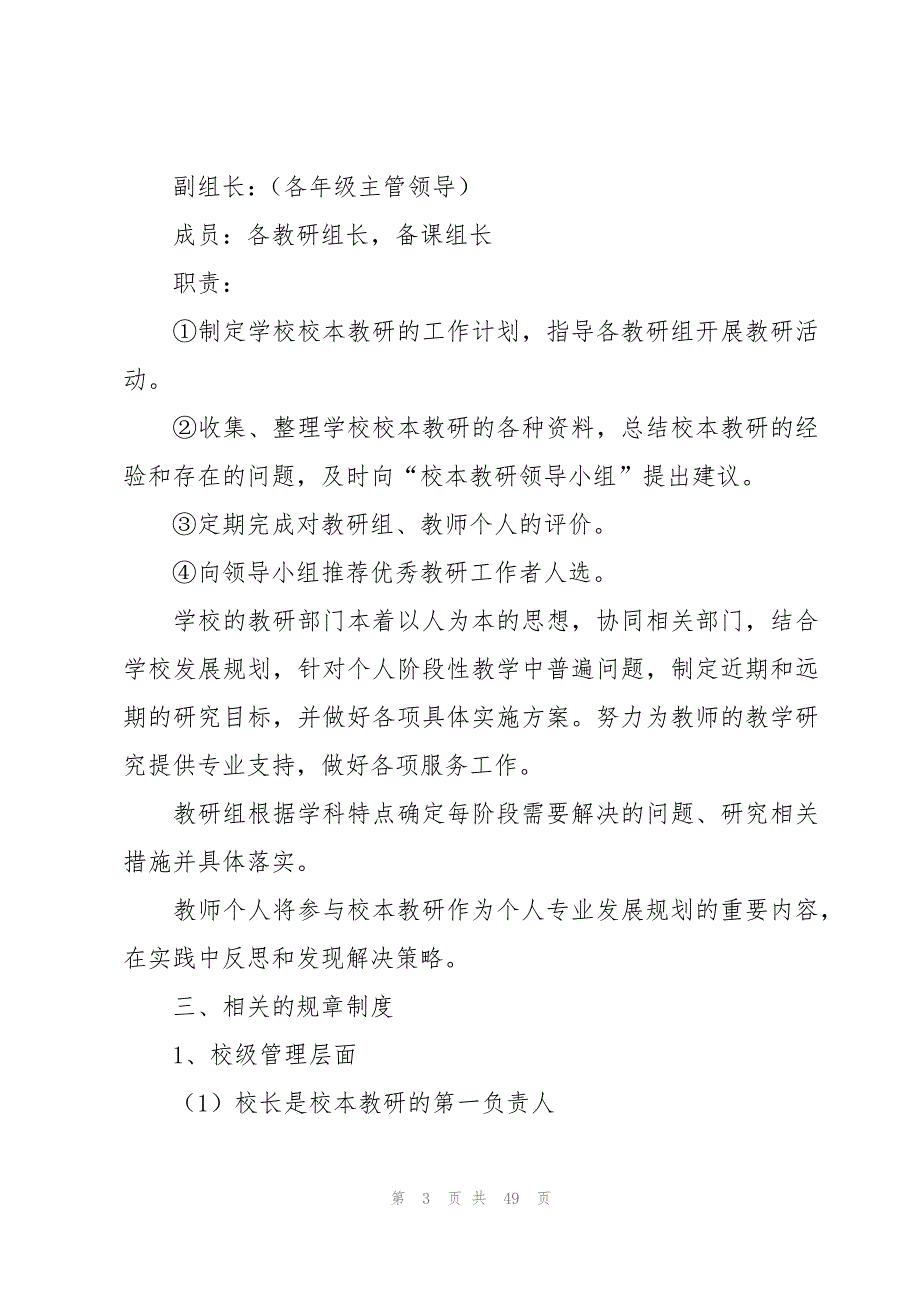 副组长：（各年级主管领导）
成员：各教研组长，备课组长
职责：
①制定学校校本教研的工作计划，指导各教研组开展教研活
动。
②收集、整理学校校本教研的各种资料，总结校本教研的经
验和存在的问题，及时向“校本教研领导小组”提出建议。
③定期完成对教研组、教师个人的评价。
④向领导小组推荐优秀教研工作者人选。
学校的教研部门本着以人为本的思想，协同相关部门，结合
学校发展规划，针对个人阶段性教学中普遍问题，制定近期和远
期的研究目标，并做好各项具体实施方案。努力为教师的教学研
究提供专业支持，做好各项服务工作。
教研组根据学科特点确定每阶段需要解决的问题、研究相关
措施并具体落实。
教师个人将参与校本教研作为个人专业发展规划的重要内容，
在实践中反思和发现解决策略。
三、相关的规章制度
1、校级管理层面
（1）校长是校本教研的第一负责人
第 3 页 共 49 页